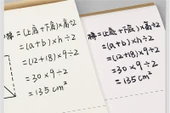 梯=(上底+下底)×高÷2
=(a+b)×h÷2
=(12+18)×9÷2
=30×9÷2
=135cm²
梯=(上底+下底)×高÷2
=(a+b)×h÷2
=(12+18)×9÷2
=30×9÷2
=135cm²